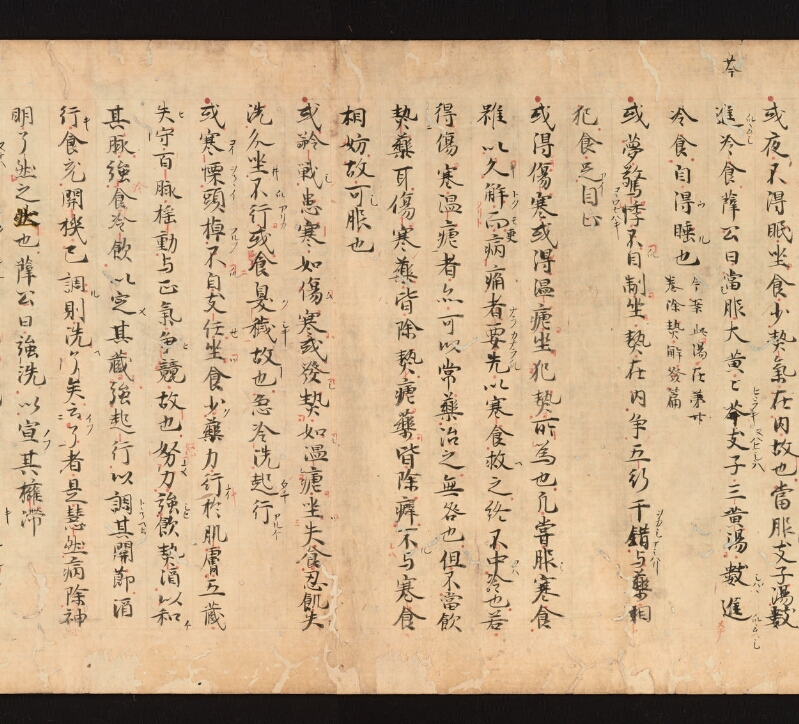 芩
或夜不得眠坐食少熱氣在内故也當服支子湯數
進冷食薛公曰當服大黄黄芩支子三黄湯數進
冷食自得睡也
今案此湯在第廿
卷除熱解發篇
或夢驚悸不自制坐熱在内爭五行干錯与藥相
犯食足自止
或得傷寒或得温瘧坐犯熱所為也凢嘗服寒食
雖以久解而病痛者要先以寒食救之終不中冷也若
得傷寒温瘧者亦可以常藥治之無咎也但不當飲
熱藥耳傷寒藥皆除熱瘧藥皆除癖不与寒食
相妨故可服也
或齡戰患寒如傷寒或發熱如温瘧坐失食忍飢失
洗久坐不行或食臭穢故也急冷洗起行
或寒慄頭掉不自支任坐食少藥力行於肌膚五蔵
失守百脉揺動与正氣争競故也努力強飲熱酒以和
其脉強食冷飲以定其蔵強起行以調其關節酒
行食充關機已調則洗了矣云了者是慧然病除神
明了然之然也薛公曰強洗以宣其擁滯